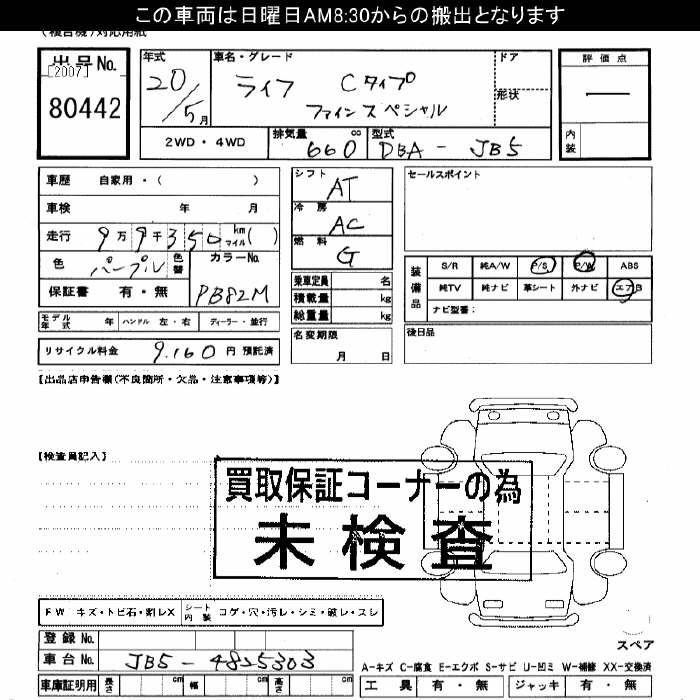 この車両は日曜日AM8:30からの搬出となります
(複合機)対応用紙
出品No.
[2007]
80442
年式
20/5月
車名・グレード
ライフ Cタイプ
ファインスペシャル
ドア
形状
評価点
内装
2WD・4WD
排気量 660 cc
型式 DBA-JB5
車歴 自家用・( )
車検 年 月
走行 9万9千350 km マイル ( )
色 パープル 色替 カラーNo.
PB82M
保証書 有・無
モデル年式 年 ハンドル 左・右 ディーラー・並行
リサイクル料金 9,160 円 預託済
シフト AT
冷房 AC
燃料 G
乗車定員 名
積載量 kg
総重量 kg
名変期限
月 日
セールスポイント
装備品
S/R 純A/W P/S P/W ABS
純TV 純ナビ 革シート 外ナビ エアB
ナビ型番:
後日品
【出品店申告欄(不良箇所・欠品・注意事項等)】
【検査員記入】
買取保証コーナーの為
未検査
FW キズ・トビ石・割レX シート内装 コゲ・穴・汚レ・シミ・破レ・スレ
登録No.
車台No. JB5-4825303
車庫証明用 長さ cm 幅 cm 高さ cm
スペア
A-キズ C-腐食 E-エクボ S-サビ U-凹ミ W-補修 XX-交換済
工具 有・無 ジャッキ 有・無